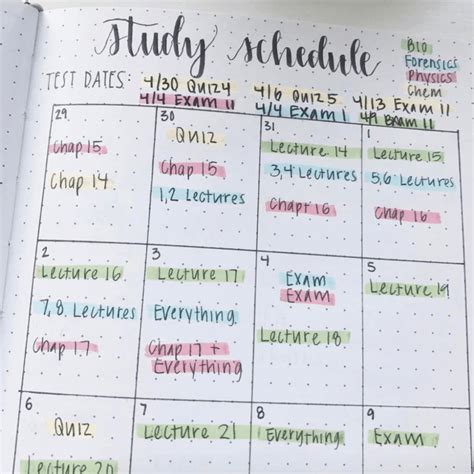 study schedule
BIO
Forensics
Physics
Chem
TEST DATES: 4/30 QUIZ 4 4/6 QUIZ 5 4/13 EXAM II
4/4 EXAM II 4/4 EXAM I 4/9 EXAM II
29 30 31 1
Chap 15
Chap 14
QUIZ
Chap 15
1,2 Lectures
Lecture 14
3,4 Lectures
Chapt 16
Lecture 15
5,6 Lectures
Chap 16
2 3 4 5
Lecture 16
7,8 Lectures
Chap 17
Lecture 17
Everything
Chap 17 +
Everything
Exam
Exam
Lecture 18
Lecture 19
6 7 8 9
QUIZ
Lecture 20
Lecture 21
Everything
Exam